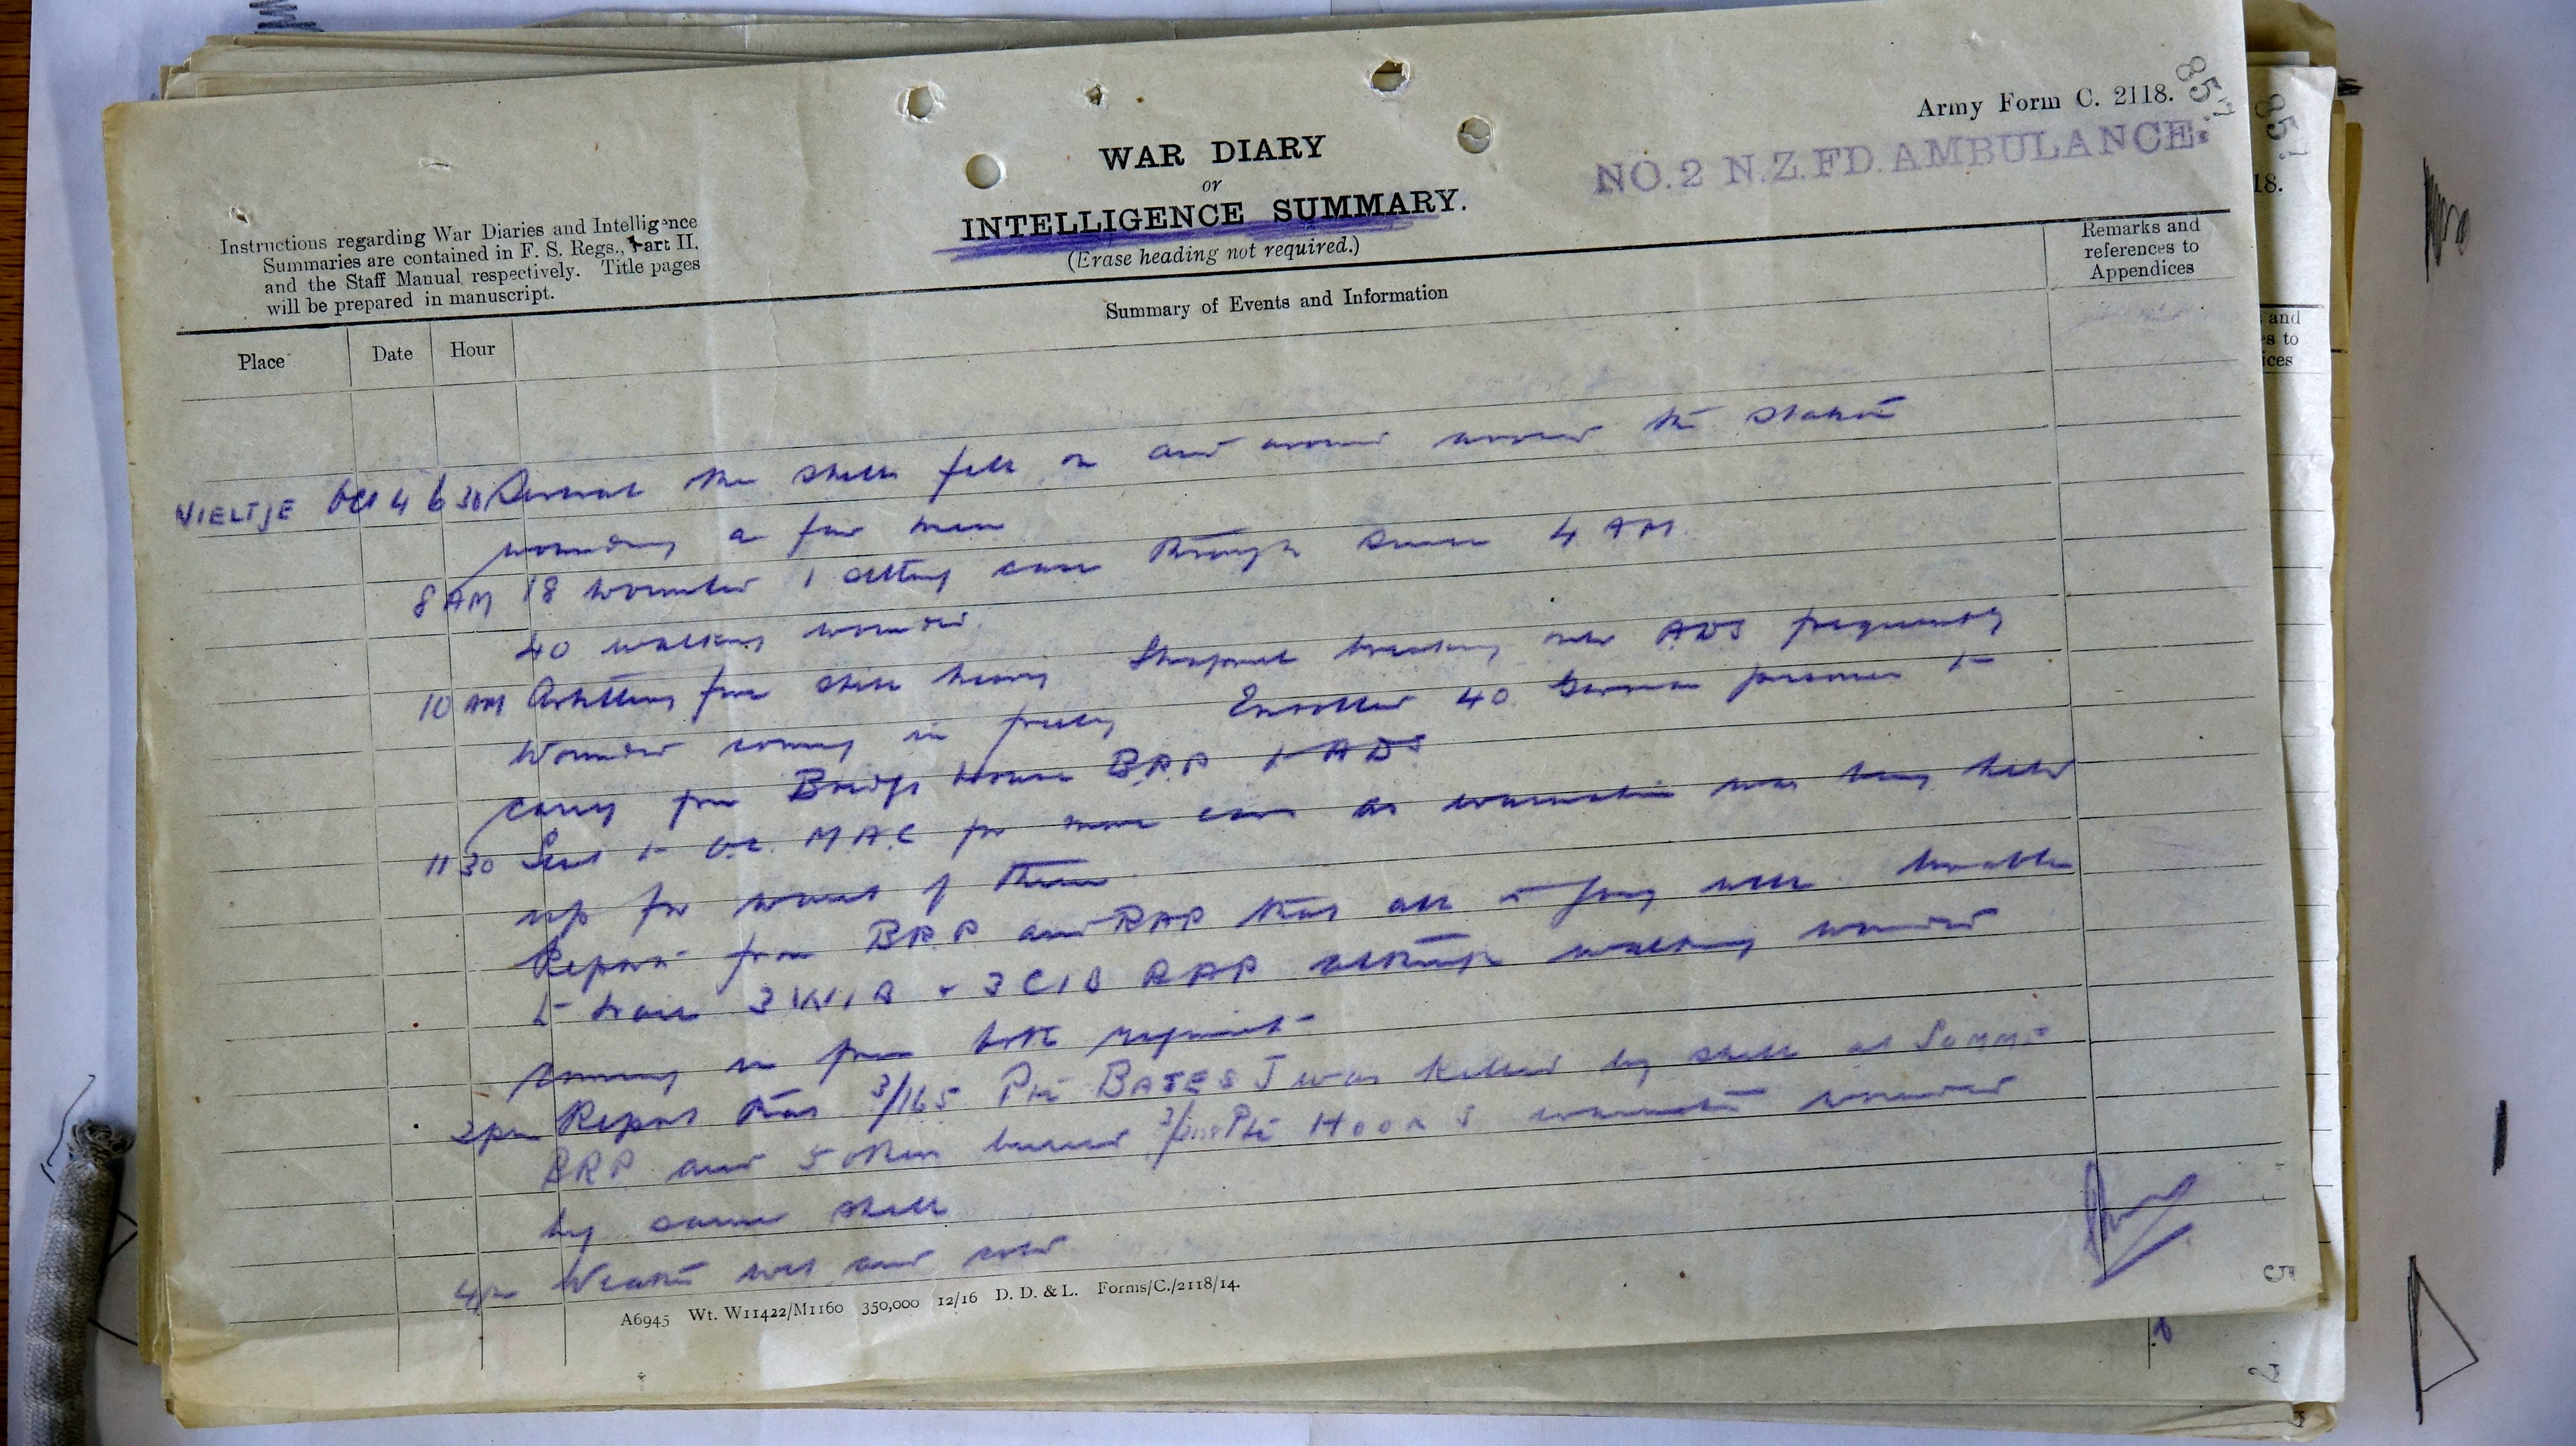 Army Form C. 2118.
857
NO. 2 N.Z. FD. AMBULANCE.
WAR DIARY
or
INTELLIGENCE SUMMARY.
(Erase heading not required.)
Instructions regarding War Diaries and Intelligence
Summaries are contained in F. S. Regs., Part II.
and the Staff Manual respectively. Title pages
will be prepared in manuscript.
Remarks and
references to
Appendices
Summary of Events and Information
Place Date Hour
WIELTJE Oct 4 6 30 Several shells fell on and around the station
wounding a few men
8 AM 18 wounded 1 sitting case through since 4 AM
40 walking wounded.
10 AM Artillery fire still heavy Shrapnel breaking over ADS frequently
Wounded coming in freely Enrolled 40 German prisoners to
carry from Bridge House BRP to ADS
11 30 Sent to O.C. M.A.C for more cars as evacuation was being held
up for want of them
Report from BRP and RAP that all is going well. Unable
to trace 3 WIB + 3 CIB RAP although walking wounded
coming in from both regiments
2pm Report that 3/165 Pte BATES J was killed by shell at Somme
BRP and 5 other bearers Pte wounded
by same shell
4pm Weather wet and cold
A6945 Wt. W11422/M1160 350,000 12/16 D. D. & L. Forms/C./2118/14.
857
18.
and
s to
ices
5